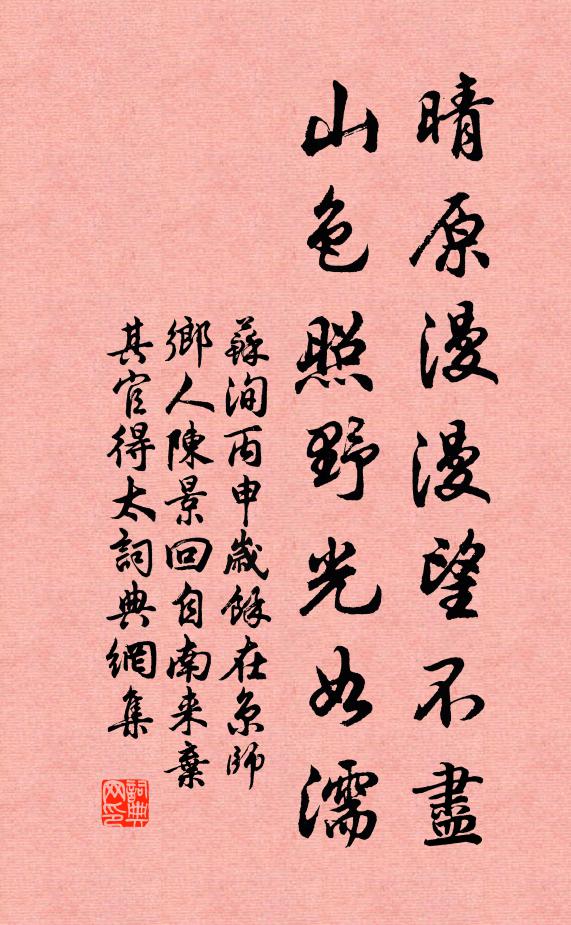 晴原漫漫望不盡
山色照野光如濡
蘇洵丙申歲餘在京師
鄉人陳景回自南来棄
其官得太詞典網集
詞典網印